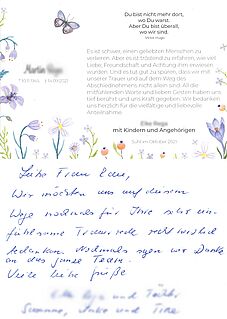 Du bist nicht mehr dort,
wo Du warst.
Aber Du bist überall,
wo wir sind.
Victor Hugo
Es ist schwer, einen geliebten Menschen zu
verlieren. Aber es ist tröstend zu erfahren, wie viel
Liebe, Freundschaft und Achtung ihm erwiesen
wurden. Und es tut gut zu spüren, dass wir mit
unserer Trauer und auf dem Weg des
Abschiednehmens nicht allein sind. All die
mitfühlenden Worte und lieben Gesten haben uns
tief berührt und uns Kraft gegeben. Wir bedanken
uns herzlich für die vielfältige und liebevolle
Anteilnahme.
Martin
mit Kindern und Angehörigen
Suhl im Oktober 2021
Liebe Frau
Wir möchten uns auf diesem
Wege nochmals für Ihre sehr ein-
fühlsame Trauerrede recht herzlich
bedanken. Nochmals sagen wir Danke
an das ganze Team.
Viele liebe Grüße
und Töchter
Susanne, Anke und Tine